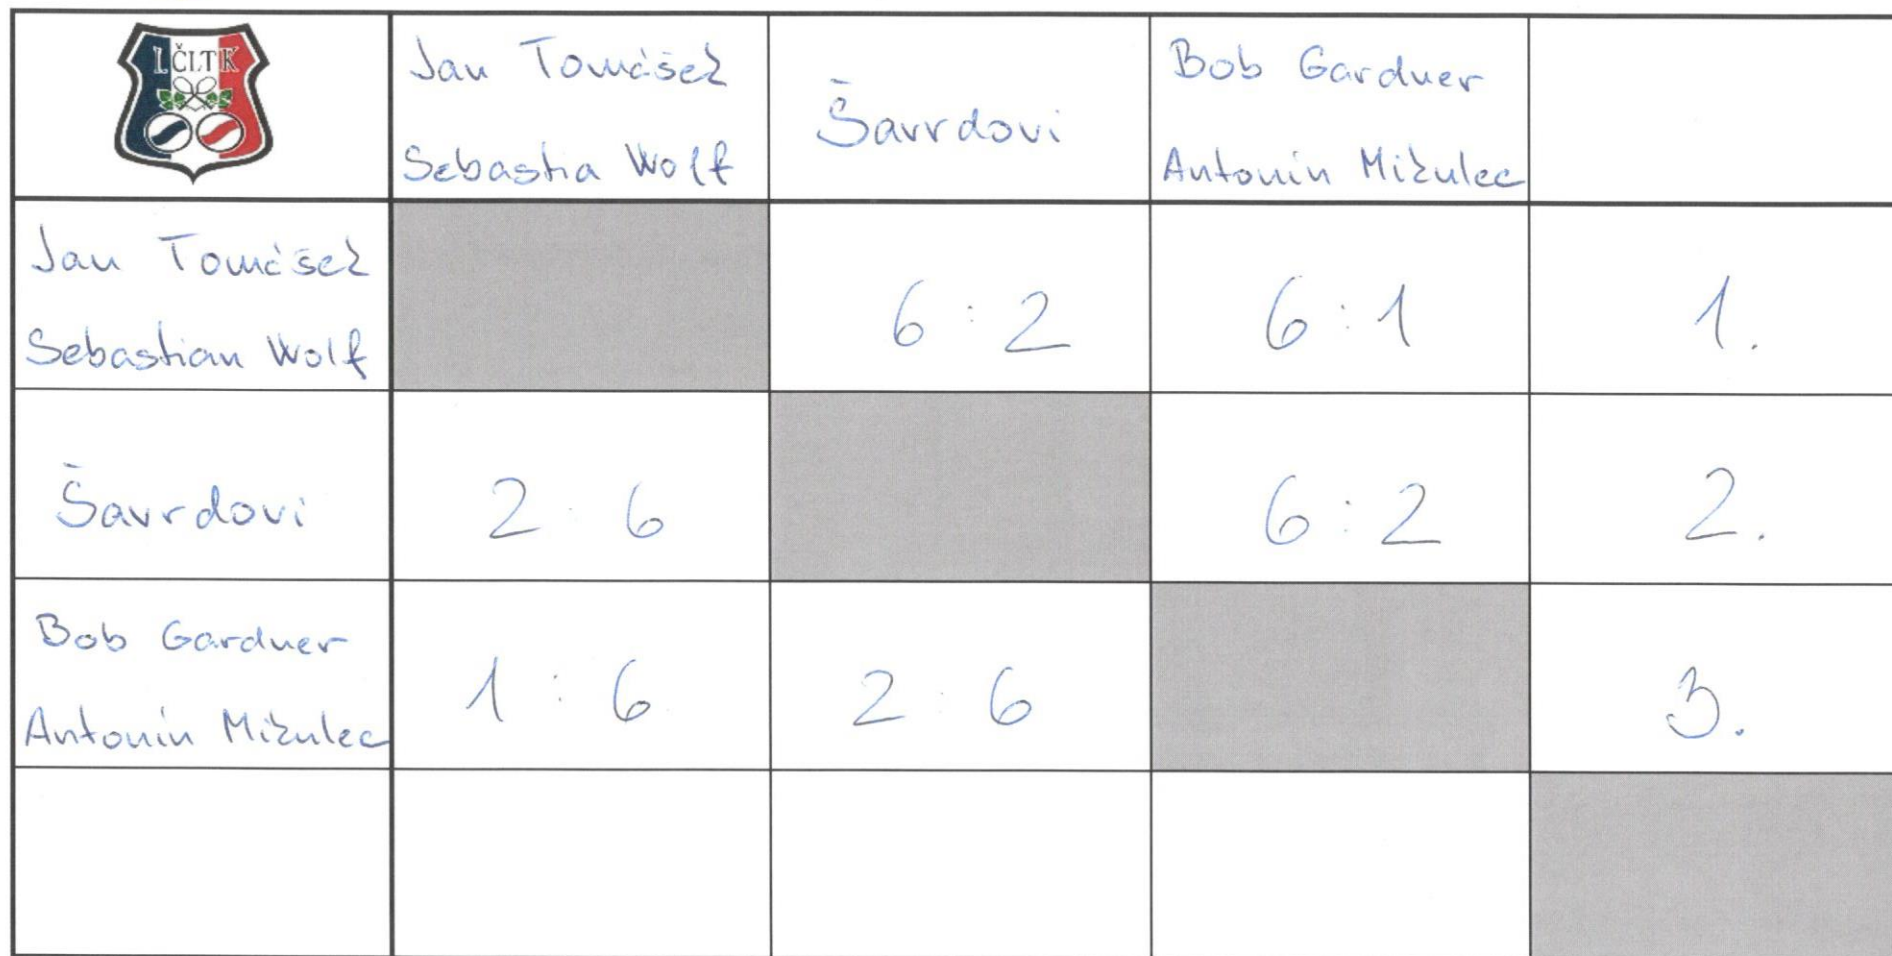 I.ČLTK
Jan Tomášek
Sebastia Wolf
Šavrdovi
Bob Gardner
Antonín Mikulec
Jan Tomášek
Sebastian Wolf
6:2
6:1
1.
Šavrdovi
2:6
6:2
2.
Bob Gardner
Antonín Mikulec
1:6
2:6
3.